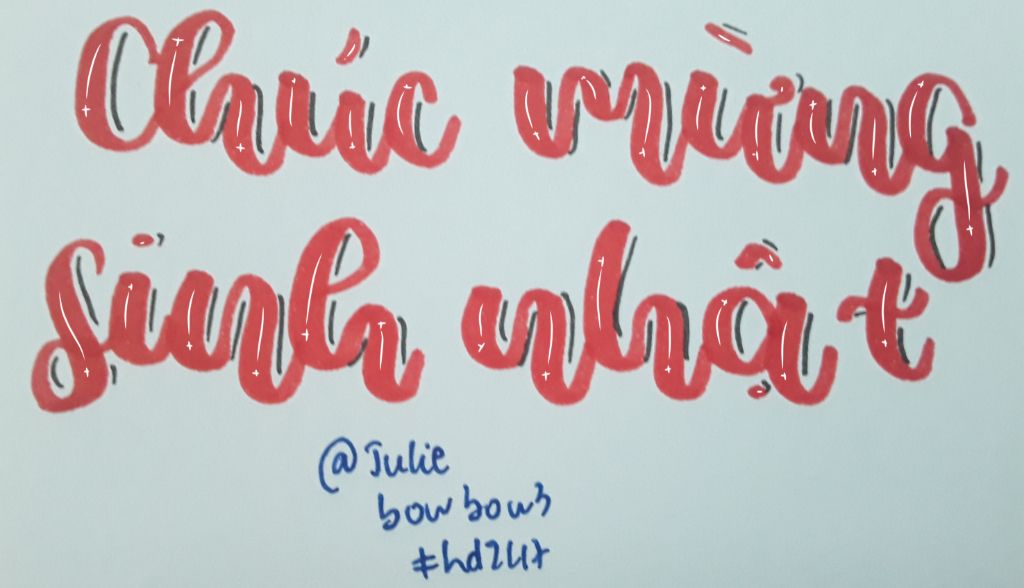 Chúc mừng
sinh nhật
@Julie
bowbow3
#hd247